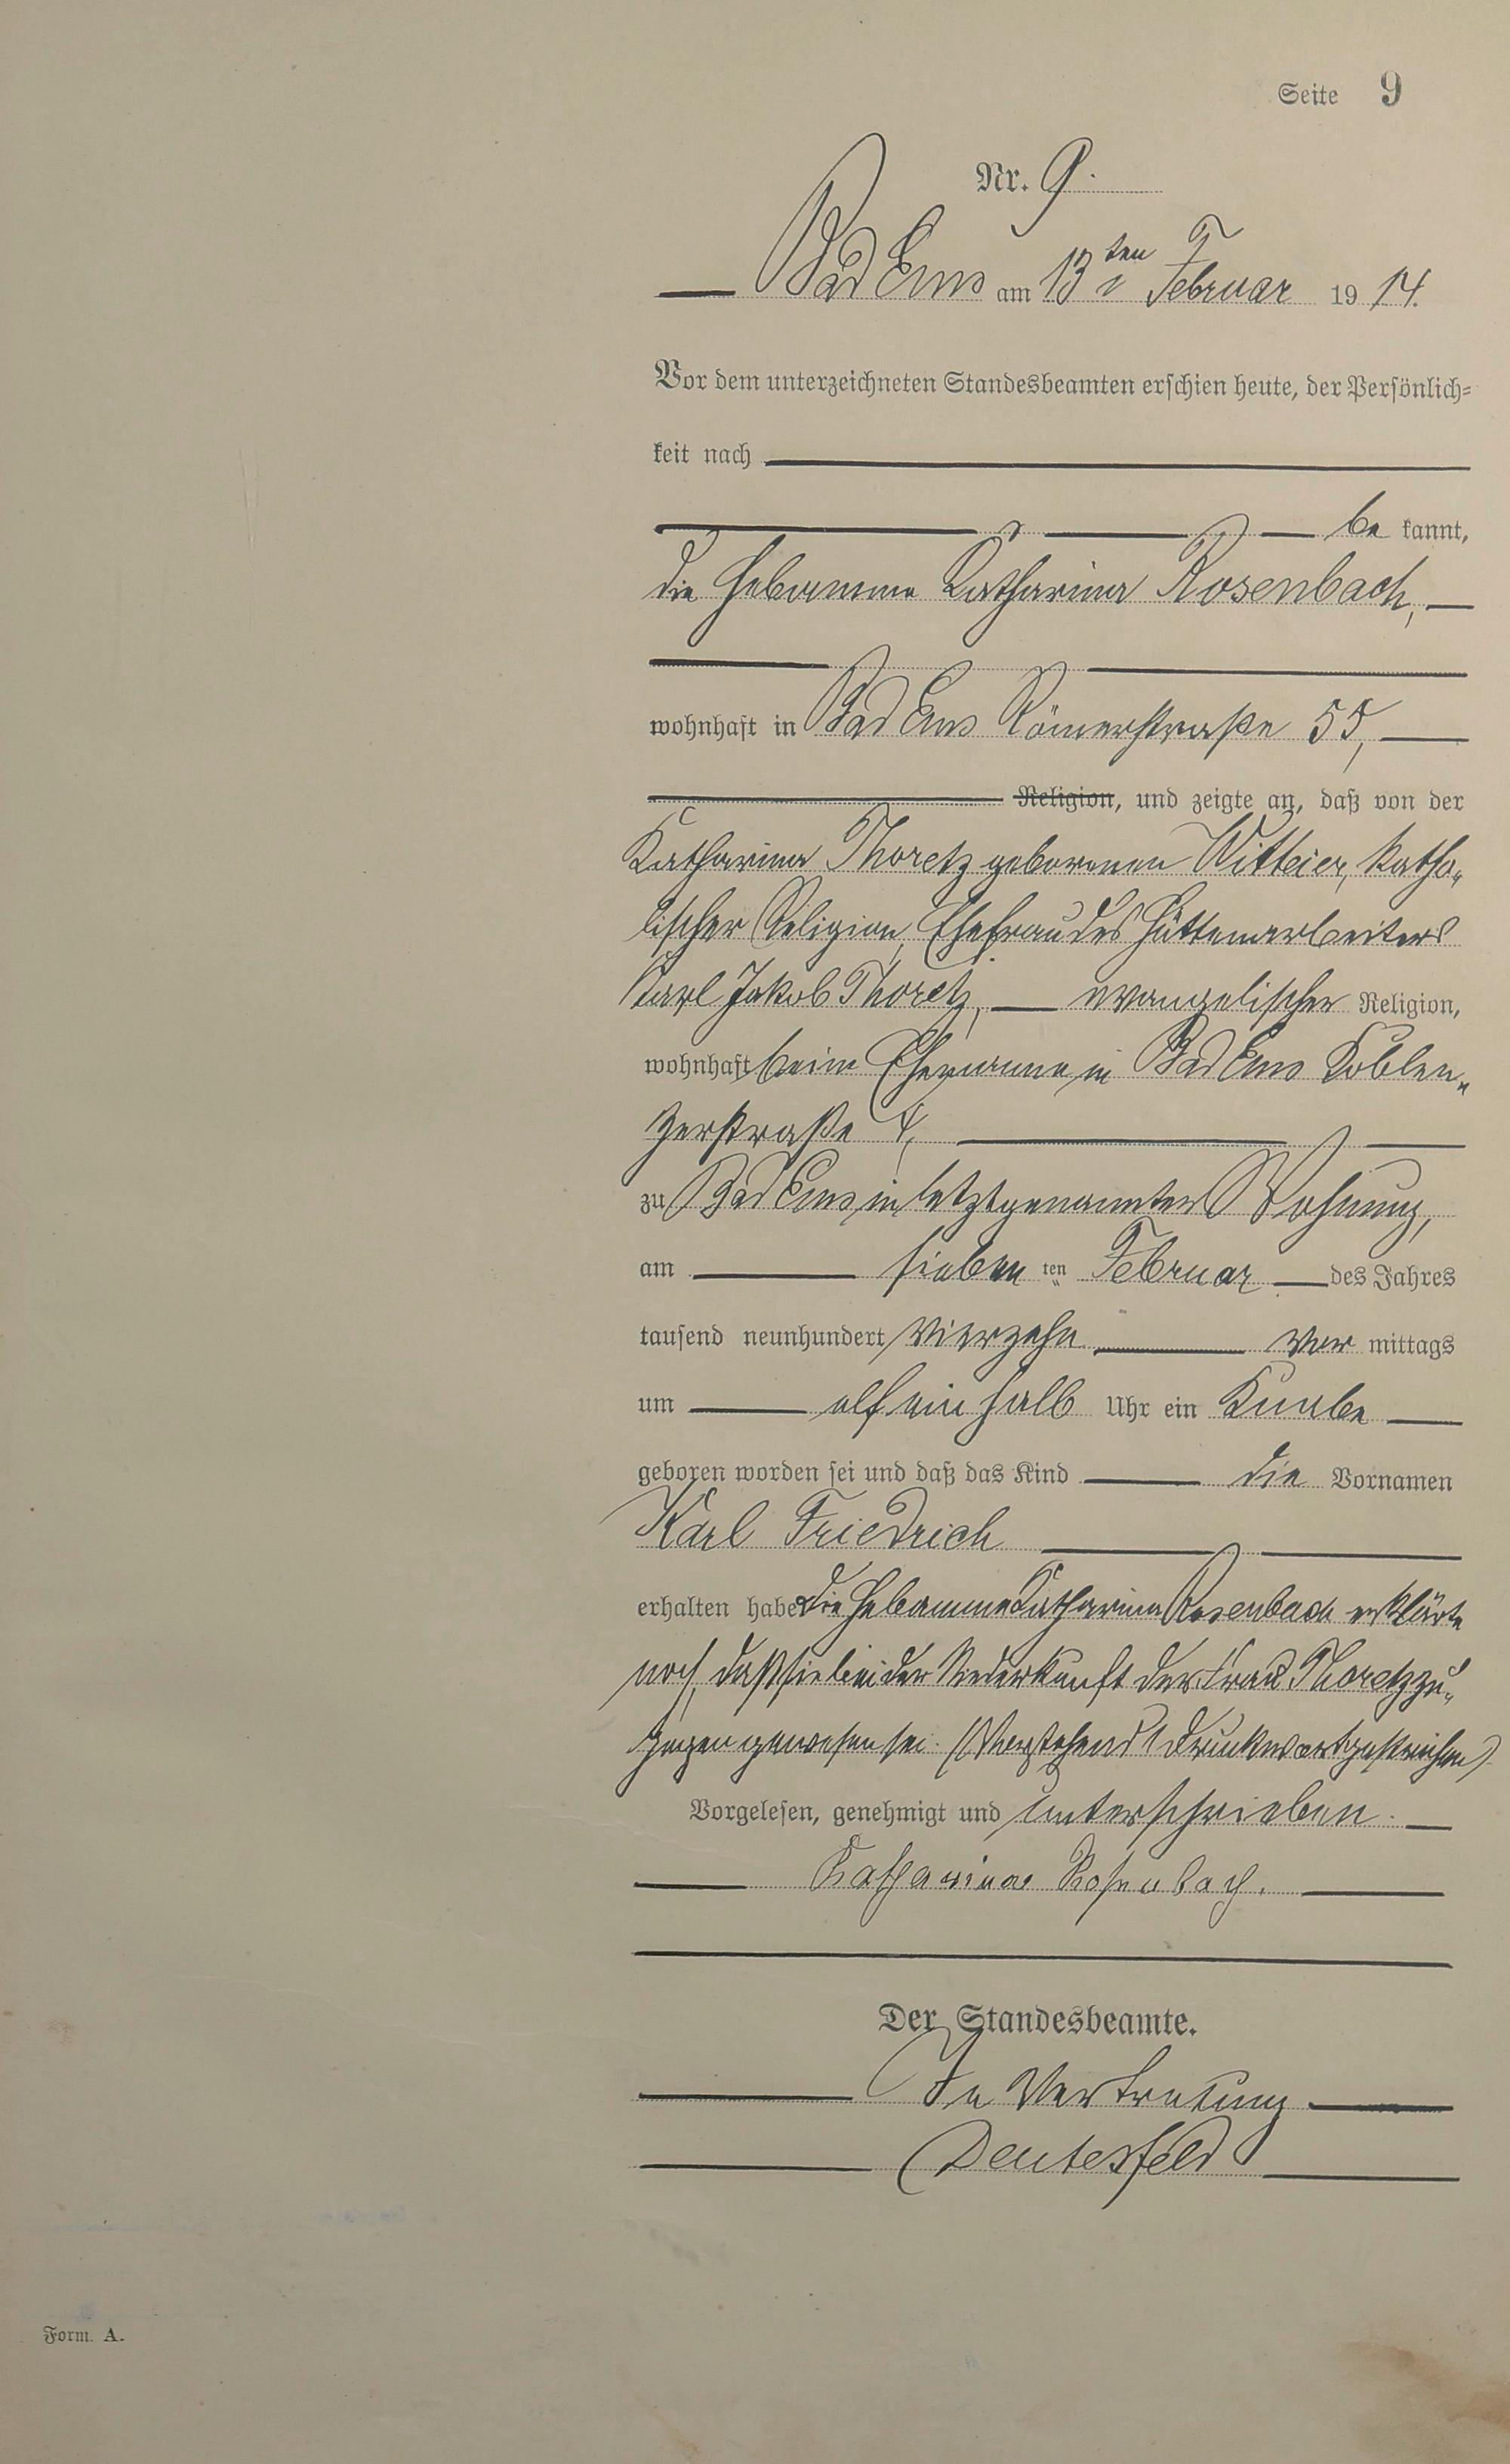 Seite 9
Nr. 9.
Bad Ems am 13ten Februar 1914.
Vor dem unterzeichneten Standesbeamten erschien heute, der Persönlich-
keit nach
be kannt,
die Hebamme Katharina Rosenbach,
wohnhaft in Bad Ems Römerstraße 55,
Religion, und zeigte an, daß von der
Katharina Thoretz geborenen Witteier, katho-
lischer Religion, Ehefrau des Hüttenarbeiters
Karl Jakob Thoretz, evangelischer Religion,
wohnhaft beim Ehemanne in Bad Ems Koblen-
zerstraße 4,
zu Bad Ems in letztgenannter Wohnung,
am sieben ten Februar des Jahres
tausend neunhundert vierzehn vor mittags
um elfeinhalb Uhr ein Knabe
geboren worden sei und daß das Kind die Vornamen
Karl Friedrich
erhalten habe. Die Hebamme Katharina Rosenbach erklärte
noch, daß sie bei der Niederkunft der Frau Thoretz zu-
gegen gewesen sei. (Vorstehend 1 Druckwort gestrichen)
Vorgelesen, genehmigt und unterschrieben.
Katharina Rosenbach.
Der Standesbeamte.
In Vertretung
Deutesfeld
Form. A.